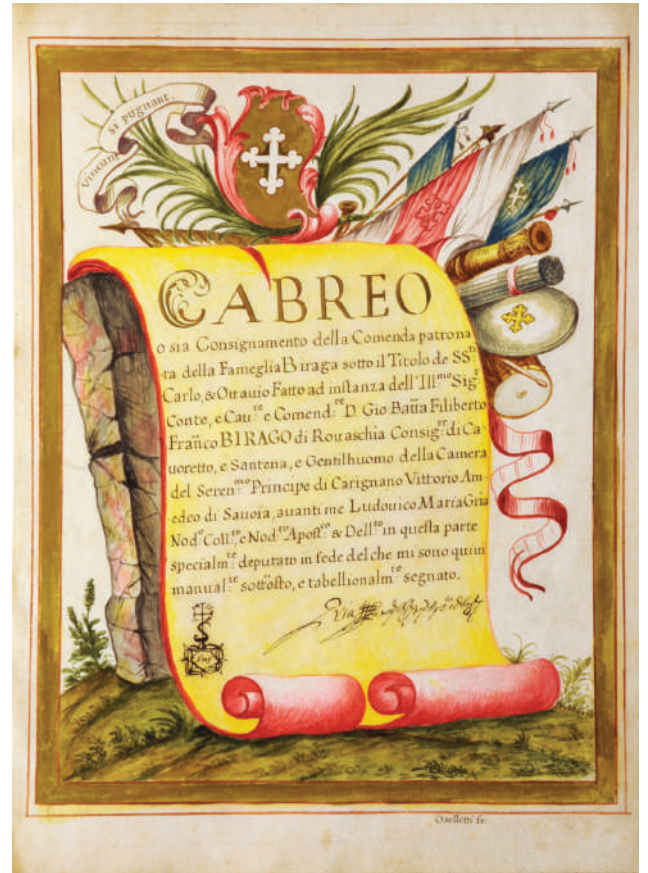 si pugnant.
vincunt
CABREO
o sia Consignamento della Comenda patrona
ta della Fameglia Biraga sotto il Titolo de SS.ti
Carlo, & Ottauio Fatto ad instanza dell' Ill.mo Sig.r
Conte, e Cau.re e Comend.re D. Gio Batta Filiberto
Franco BIRAGO di Rouaschia Consig.re di Ca
uoretto, e Santena, e Gentilhuomo della Camera
del Seren.mo Principe di Carignano Vittorio Am
edeo di Sauoia, auanti me Ludouico Maria Gria
Nod.o Coll.to e Nod.ro Apost.co & Dell.to in questa parte
specialm.te deputato in fede del che mi sono qui in
manual.te sottosto, e tabellionalm.te segnato.
fe.